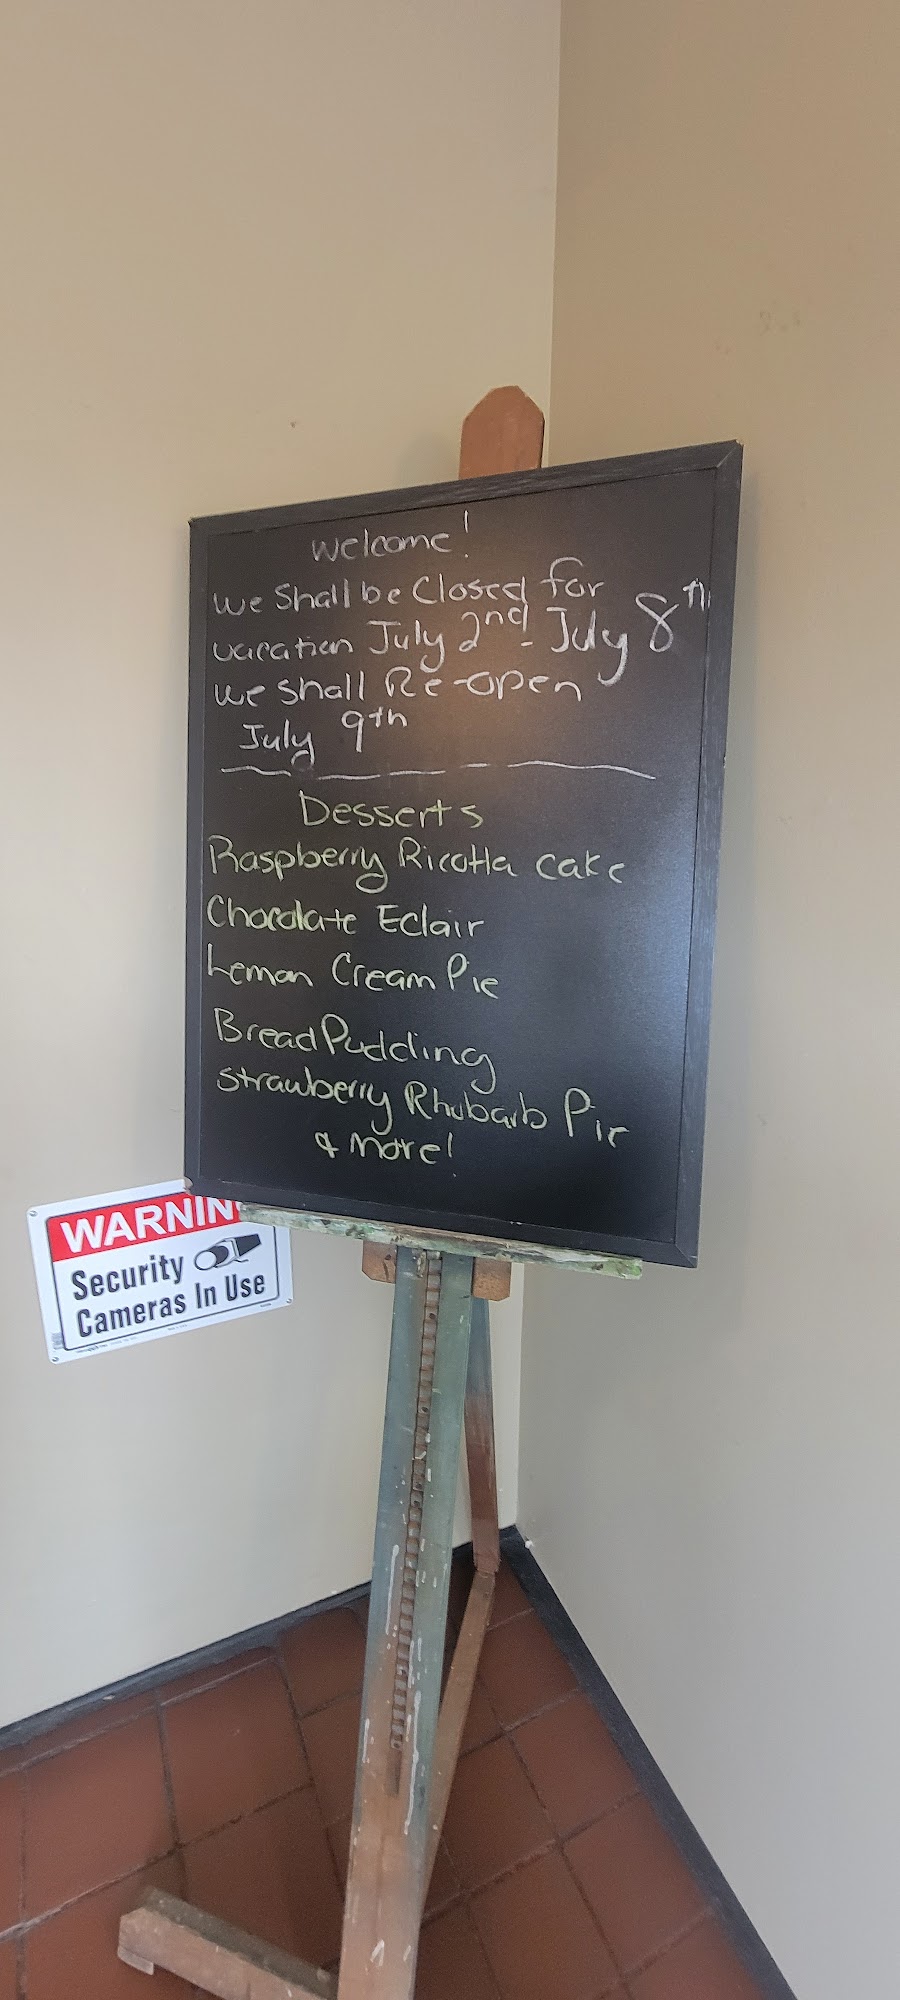 Welcome!
We Shall be Closed for
vacation July 2nd - July 8th
We Shall Re-open
July 9th
Desserts
Raspberry Ricotta cake
Chocolate Eclair
Lemon Cream Pie
Bread Pudding
Strawberry Rhubarb Pie
& More!
WARNIN
Security
Cameras In Use